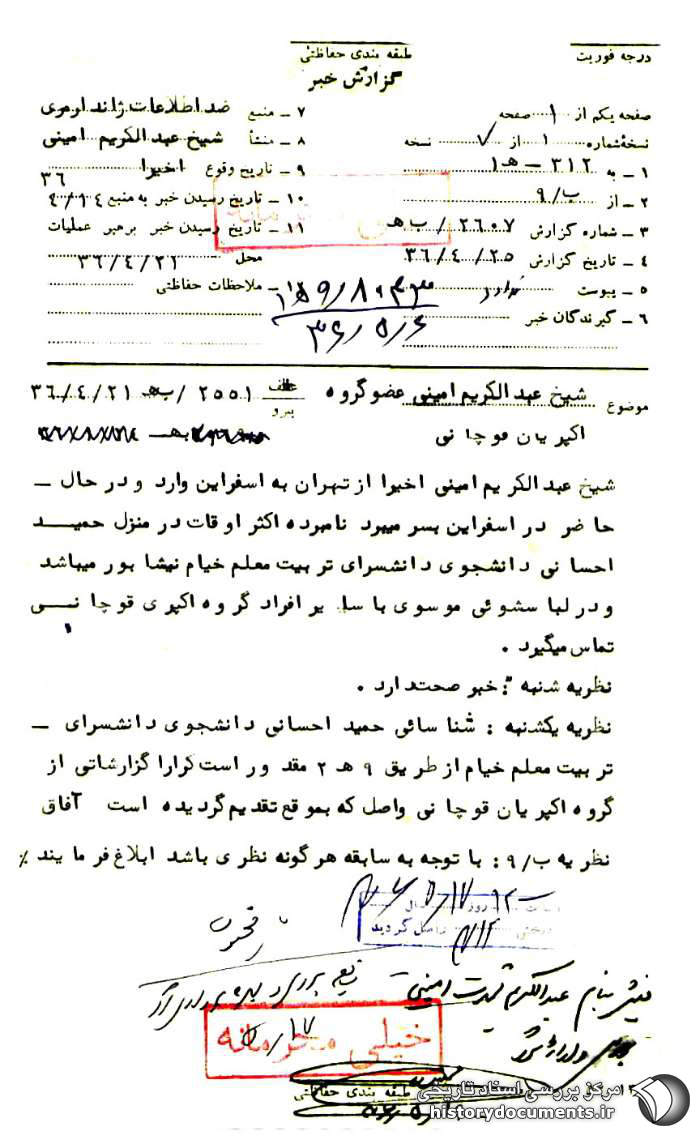 درجه فوریت
طبقه بندی حفاظتی
گزارش خبر
صفحه یکم از ۱ صفحه
نسخه شماره ۱ از ۷ نسخه
۱ – به ۳۱۲ – هـ۱
۲ – از ۹/ب
۳ – شماره گزارش ۲۶۰۷ / ب هـ
۴ – تاریخ گزارش ۳۶/۴/۲۵
۵ – پیوست ندارد
۶ – گیرندگان خبر
۷ – منبع ضد اطلاعات ژاندارمری
۸ – منشأ شیخ عبدالکریم امینی
۹ – تاریخ وقوع اخیرا
۱۰ – تاریخ رسیدن خبر به منبع ۳۶/۴/۱۴
۱۱ – تاریخ رسیدن خبر برهبر عملیات
محل ۳۶/۴/۲۱
ملاحظات حفاظتی
۳۶/۵/۶
موضوع شیخ عبدالکریم امینی عضوگروه
اکبریان قوچانی
عطف ۲۵۵۱ / ب هـ ۳۶/۴/۲۱
پیرو
شیخ عبدالکریم امینی اخیرا ازتهران به اسفراین وارد ودرحال –
حاضر دراسفراین بسر میبرد نامبرده اکثر اوقات درمنزل حمیـد
احسانی دانشجوی دانشسرای تربیت معلم خیام نیشابور میباشد
ودرلباسشوئی موسوی باسایر افراد گروه اکبری قوچانـی
تماس میگیرد .
نظریه شنبه : خبر صحت دارد .
نظریه یکشنبه : شناسائی حمید احسانی دانشجوی دانشسرای –
تربیت معلم خیام از طریق ۹ هـ ۲ مقدور است کرارا گزارشاتی از
گروه اکبریان قوچانی واصل که بموقع تقدیم گردیده است آفاق
نظریه ۹/ب : با توجه به سابقه هرگونه نظری باشد ابلاغ فرمایند ٪
روز
سال
واصل گردید
بنام عبدالکریم
امینی
خیلی محرمانه
طبقه بندی حفاظتی
مرکز بررسی اسناد تاریخی
historydocuments.ir